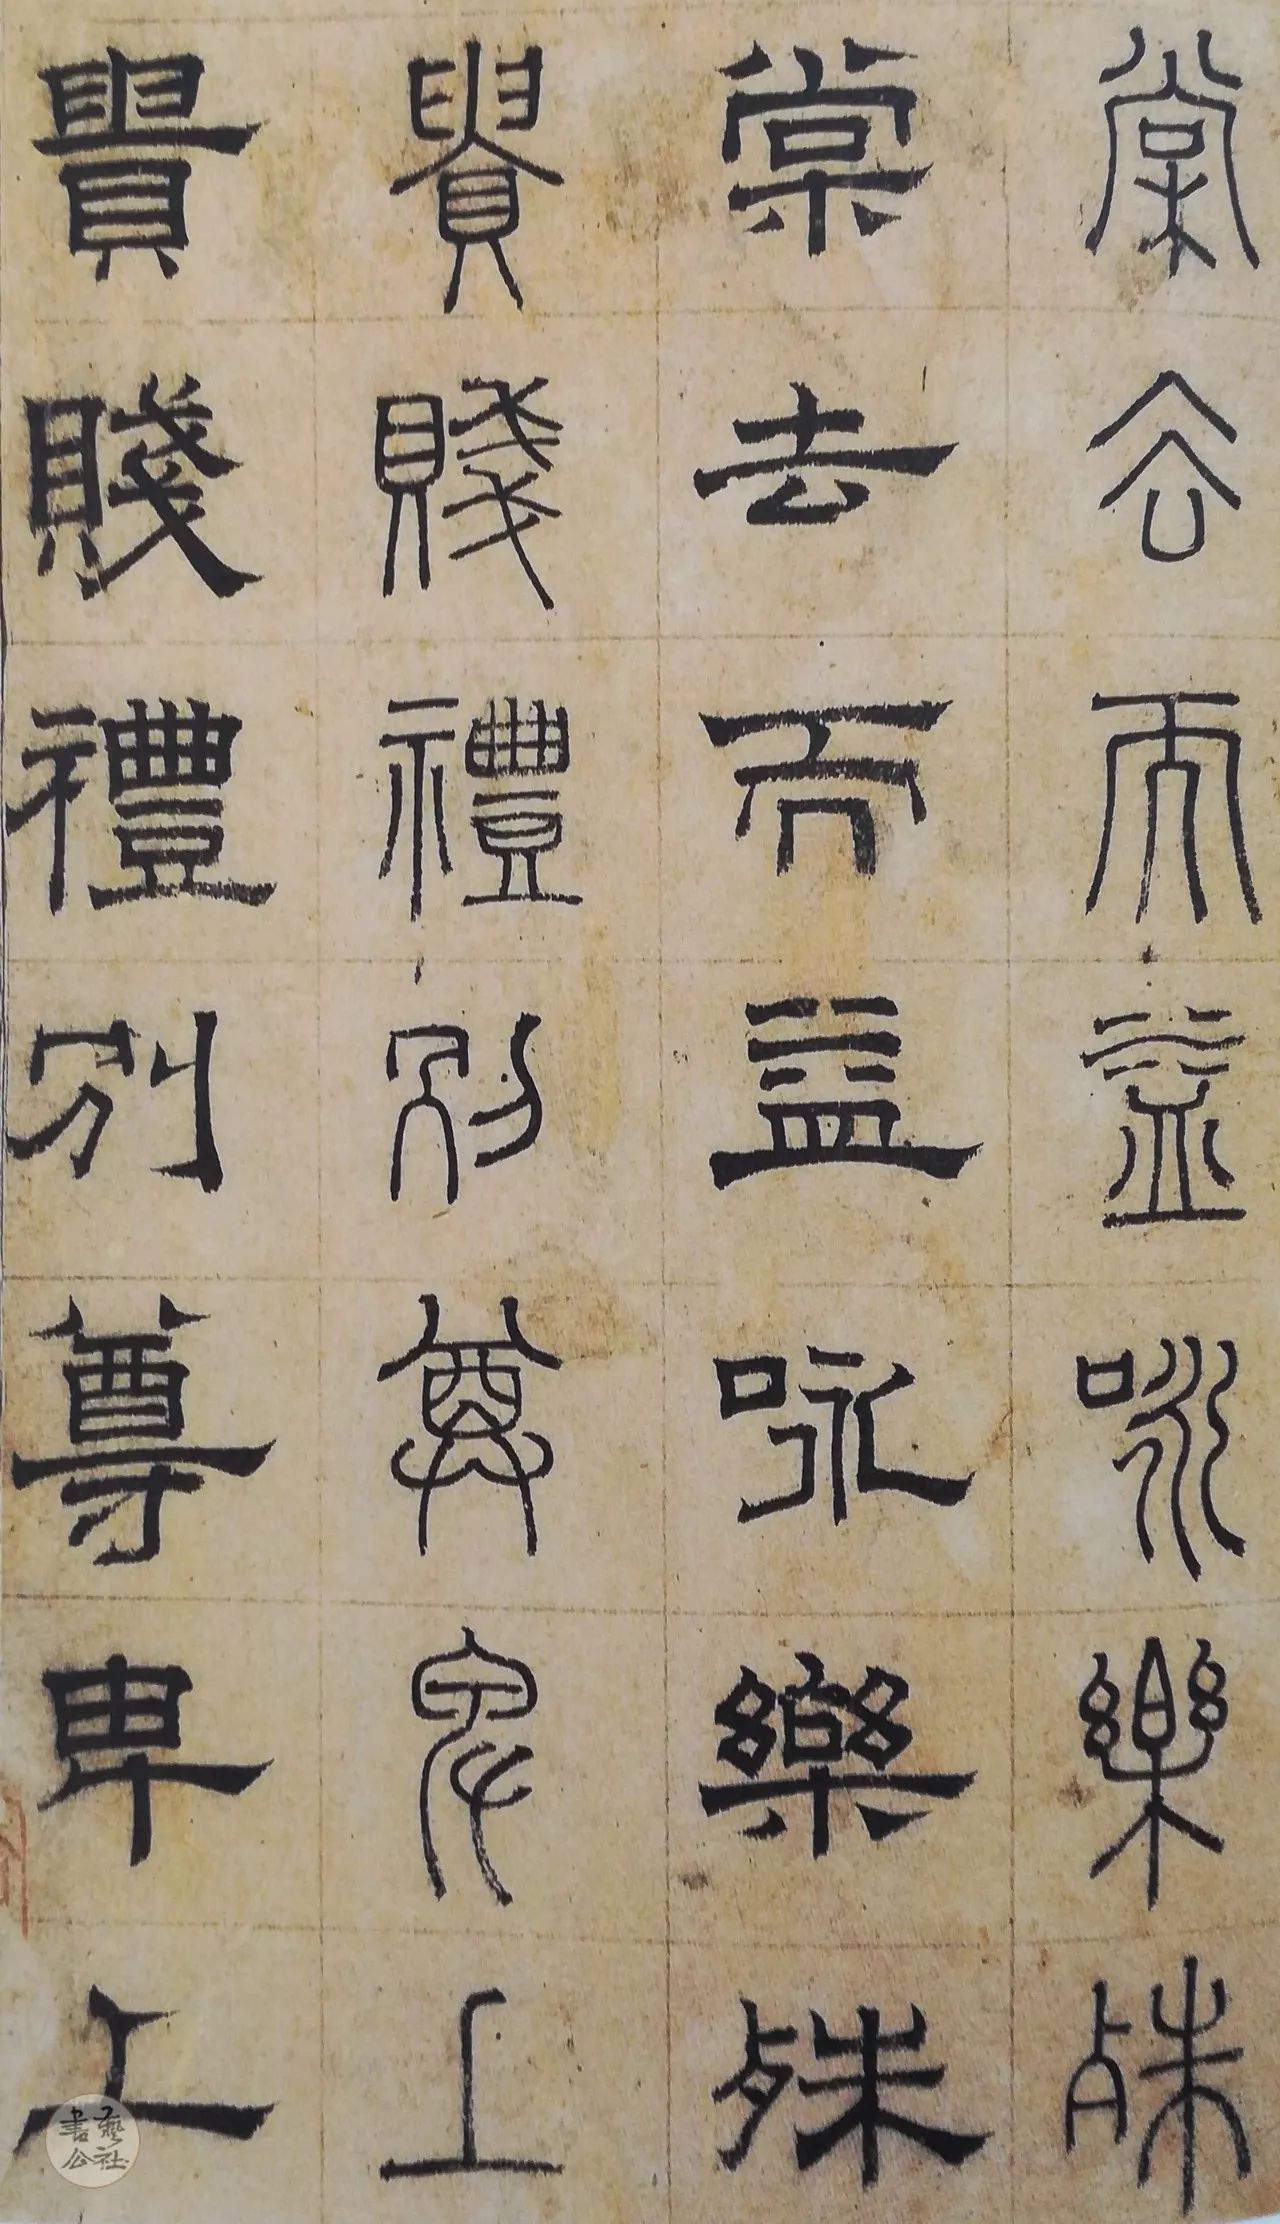 棠去而益咏樂殊
棠去而益咏樂殊
貴賤禮別尊卑上
貴賤禮別尊卑上
書藝公社